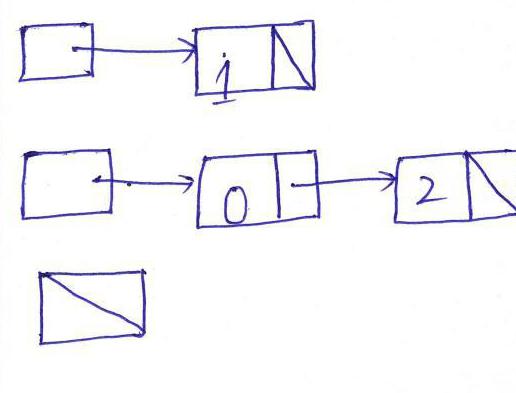 1
0 2